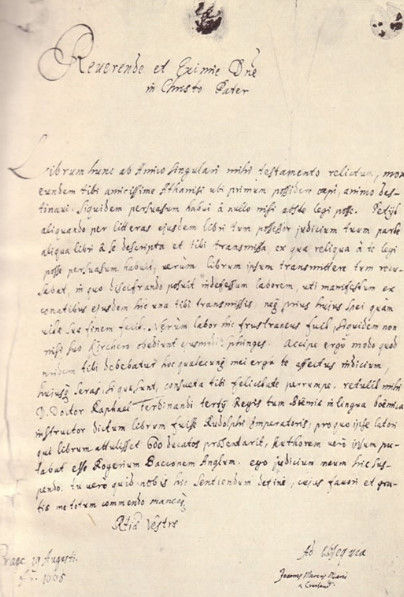 Reverende et Eximie Dñe
in Christo Pater
Librum hunc ab Amico singulari mihi testamento relictum, mox
eundem tibi amicissime Athanasi ubi primum possidere cæpi, animo des-
tinavi: siquidem persuasum habui à nullo nisi abs te legi posse. Petijt
aliquando per litteras ejusdem libri tum possessor judicium tuum parte
aliqua libri à se descripta et tibi transmissa ex qua reliqua à te legi
posse persuasum habuit; verùm librum ipsum transmittere tum recu-
sabat, in quo deciffrando posuit indefessum laborem, uti manifestum ex
conatibus ejusdem hic una tibi transmissis neq. prius huius spei quàm
vitæ suæ finem fecit. Verùm labor hic frustraneus fuit, siquidem non
nisi suo Kirchero obediunt ejusmodi sphinges. Accipe ergò modò quod
pridem tibi debebatur hoc qualecunq. mei erga te affectus indicium,
huiusq. seras, si quæ sunt, consueta tibi felicitate perrumpe. retulit mihi
D. Doctor Raphael Ferdinandi tertij Regis tum Boëmiæ in lingua boëmica
instructor dictum librum fuisse Rudolphi Imperatoris, pro quo ipse latori
qui librum attulisset 600 ducatos præsentarit, Authorem verò ipsum pu-
tabat esse Rogerium Bacconem Anglum. ego judicium meum hic sus-
pendo. tu verò quid nobis hic sentiendum defini, cuius favori et gra-
tiæ me totum commendo maneoq.
Rtiæ Vestræ
Ad Obsequia
Joannes Marcus Marci
a Cronland
Pragæ 19 Augusti